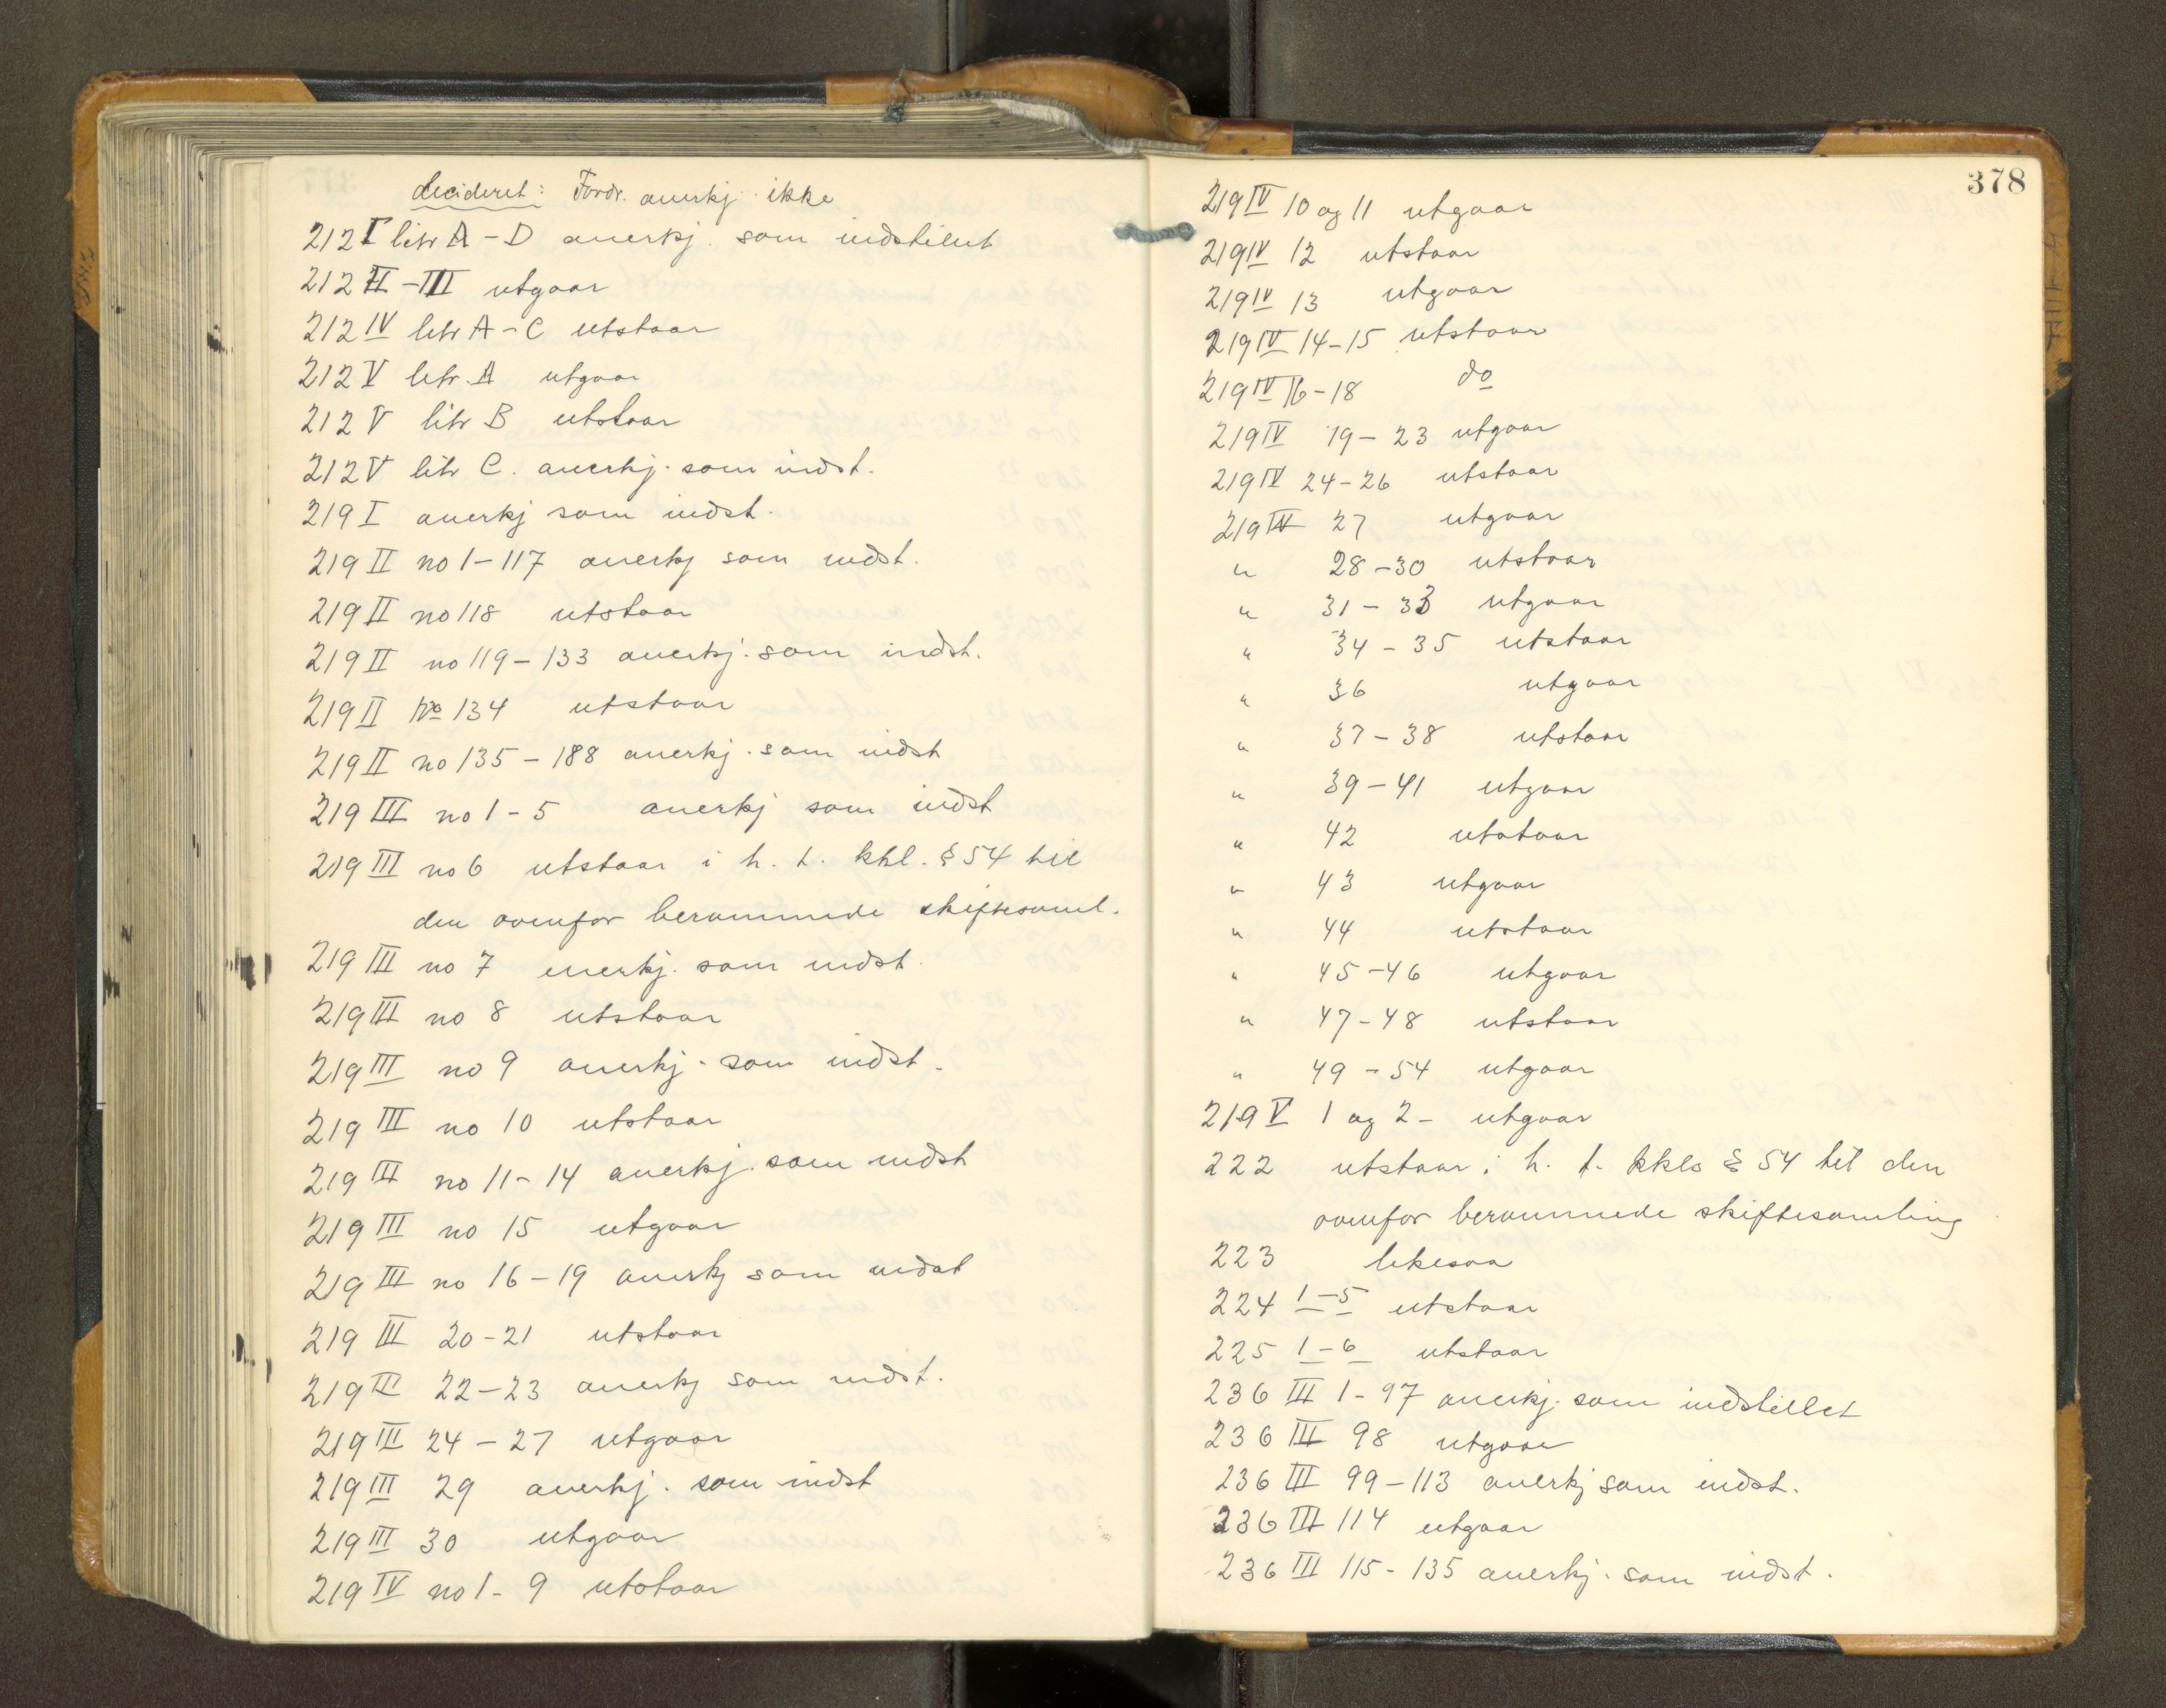 decideret: Fordr. anerkj. ikke
212 I litr A - D anerkj. som indstillet
212 II - III utgaar
212 IV litr A - C utstaar
212 V litr. A utgaar
212 V litr B utstaar
212 V litr C. anerkj. som indst.
219 I anerkj som indst.
219 II no 1 - 117 anerkj som indst.
219 II no 118 utstaar
219 II no 119 - 133 anerkj. som indst.
219 II No 134 utstaar
219 II no 135 - 188 anerkj. som indst
219 III no 1 - 5 anerkj som indst
219 III no 6 utstaar i h. t. kkl. § 54 til
den ovenfor berammede skiftesaml.
219 III no 7 anerkj. som indst.
219 III no 8 utstaar
219 III no 9 anerkj. som indst.
219 III no 10 utstaar
219 III no 11 - 14 anerkj. som indst
219 III no 15 utgaar
219 III no 16 - 19 anerkj som indst
219 III 20 - 21 utstaar
219 III 22 - 23 anerkj som indst.
219 III 24 - 27 utgaar
219 III 29 anerkj. som indst
219 III 30 utgaar
219 IV no 1 - 9 utstaar
378
219 IV 10 og 11 utgaar
219 IV 12 utstaar
219 IV 13 utgaar
219 IV 14 - 15 utstaar
219 IV 16 - 18 do
219 IV 19 - 23 utgaar
219 IV 24 - 26 utstaar
219 IV 27 utgaar
" 28 - 30 utstaar
" 31 - 33 utgaar
" 34 - 35 utstaar
" 36 utgaar
" 37 - 38 utstaar
" 39 - 41 utgaar
" 42 utstaar
" 43 utgaar
" 44 utstaar
" 45 - 46 utgaar
" 47 - 48 utstaar
" 49 - 54 utgaar
219 V 1 og 2 - utgaar
222 utstaar i h. t. kkls § 54 til den
ovenfor berammede skiftesamling
223 likesaa
224 1 - 5 utstaar
225 1 - 6 utstaar
236 III 1 - 97 anerkj. som indstillet
236 III 98 utgaar
236 III 99 - 113 anerkj som indst.
236 III 114 utgaar
236 III 115 - 135 anerkj. som indst.